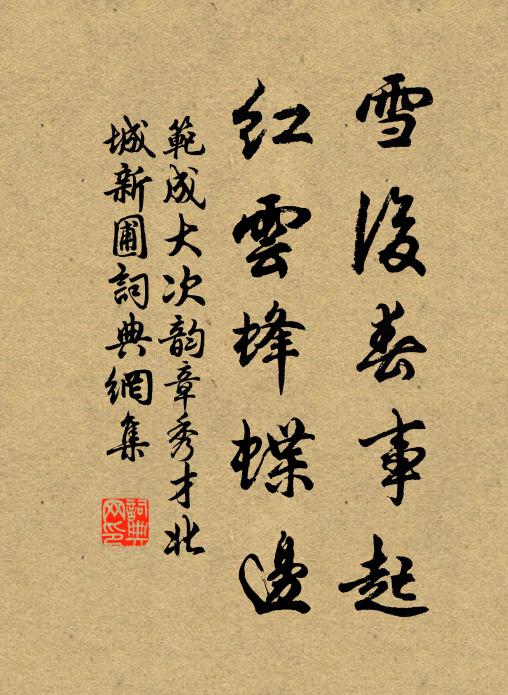 雪後春事起
紅雲蜂蝶邊
範成大次韵章秀才北
城新圃詞典網集
詞典
网印